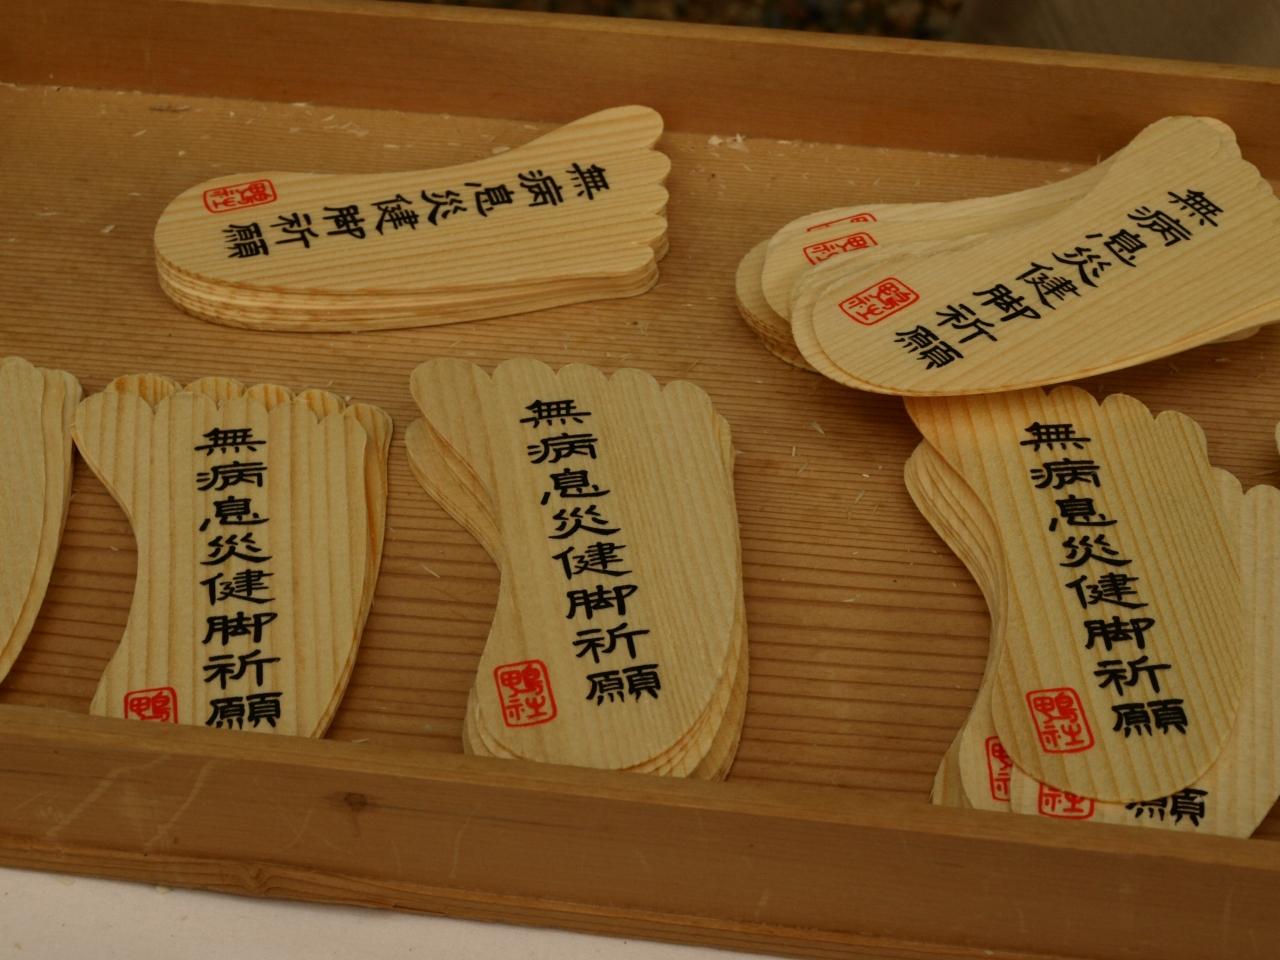 無病息災健脚祈願
鴨社
無病息災健脚祈願
鴨社
鴨社
無病息災健脚祈願
鴨社
無病息災健脚祈願
鴨社
無病息災健脚祈願
鴨社
願
鴨社